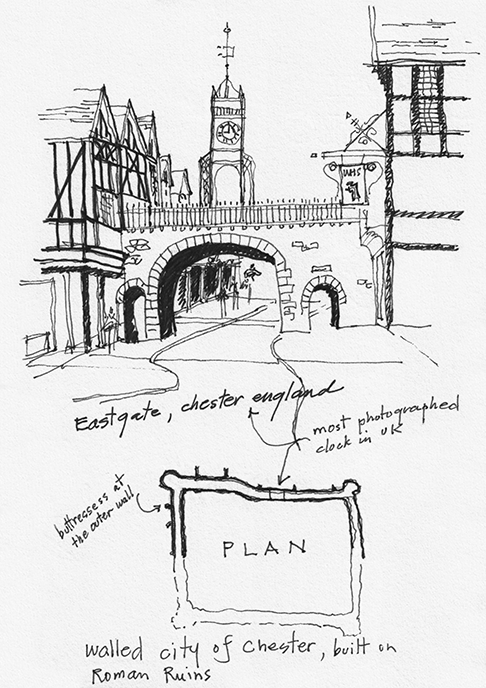 WHS
Eastgate, chester england
most photographed
clock in UK
buttressess at
the outer wall
PLAN
walled city of Chester, built on
Roman Ruins